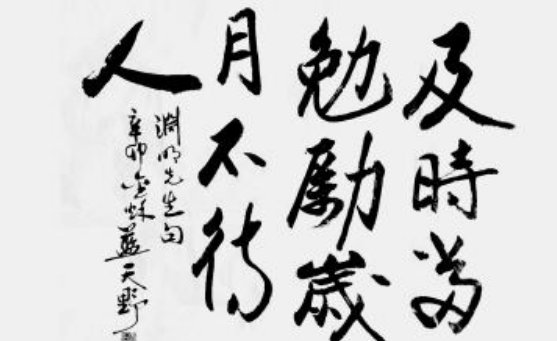 及時當
勉勵歲
月不待
人
淵明先生句
辛卯金秋藍天野